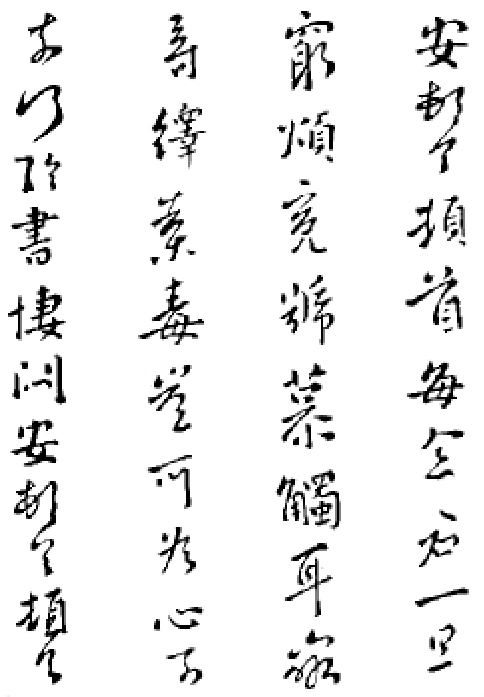 安頓首頓首每念君一旦
窮煩冤號慕觸耳崩
尋繹荼毒豈可為心
奈何臨書悽悶安頓首頓首